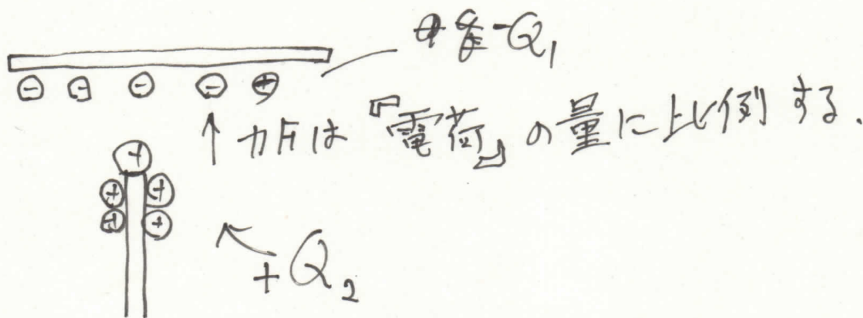 -Q₁
⊖ ⊖ ⊖ ⊖ ⊕
↑ 力Fは『電荷』の量に比例する.
+
+ +
+ +
+Q₂